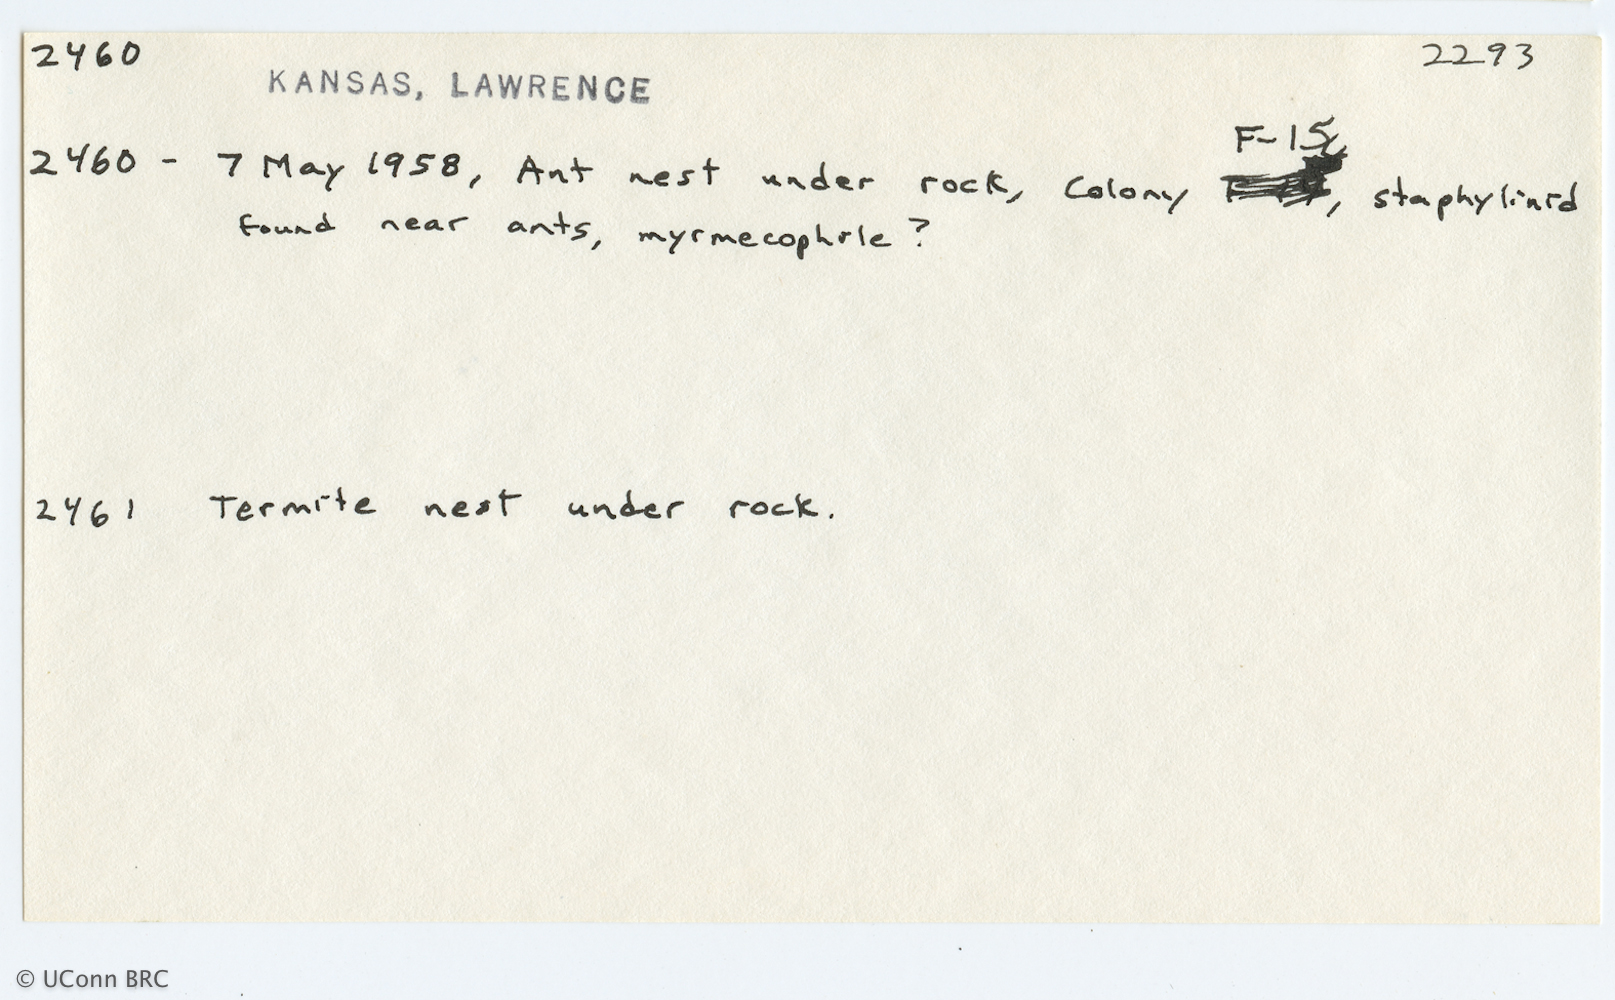 2460
2293
KANSAS, LAWRENCE
F-15
2460 - 7 May 1958, Ant nest under rock, Colony , staphylinid
found near ants, myrmecophile ?
2461 Termite nest under rock.
© UConn BRC